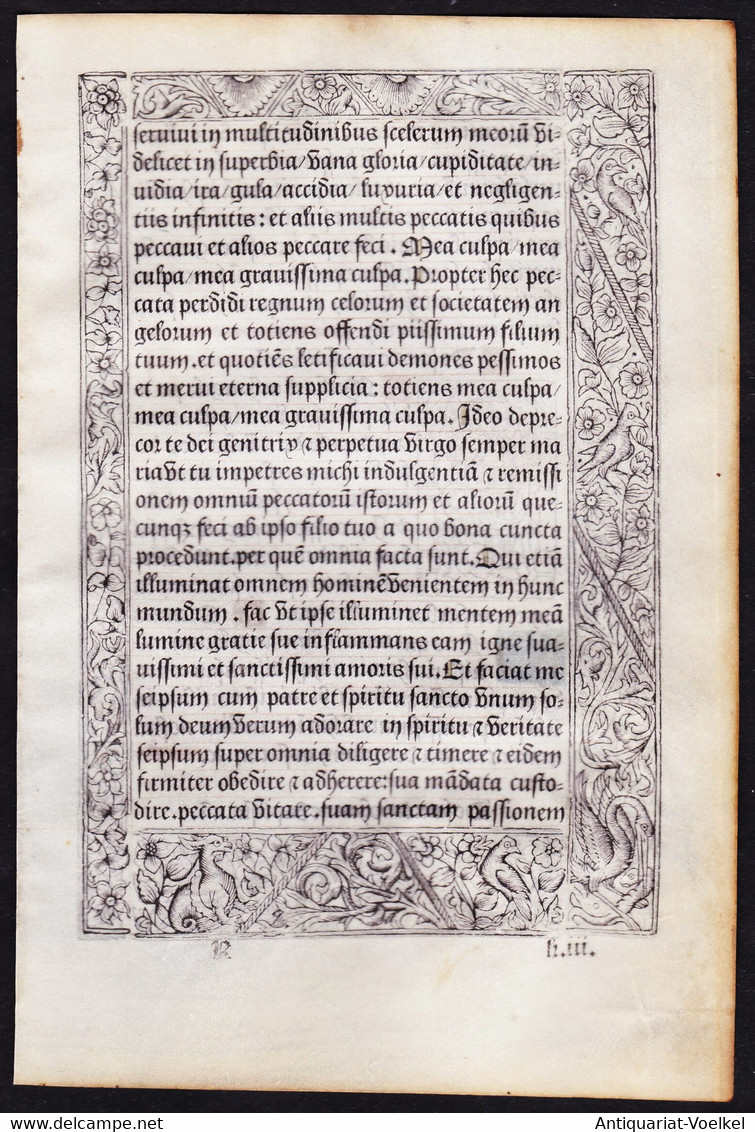 seruiui in multitudinibus scelerum meorū vi-
delicet in superbia/vana gloria/cupiditate/in-
uidia/ira/gula/accidia/luxuria/et negligen-
tiis infinitis: et aliis multis peccatis quibus
peccaui et alios peccare feci. Mea culpa/mea
culpa/mea grauissima culpa. Propter hec pec-
cata perdidi regnum celorum et societatem an
gelorum et totiens offendi piissimum filium
tuum. et quotiēs letificaui demones pessimos
et merui eterna supplicia: totiens mea culpa/
mea culpa/mea grauissima culpa. Ideo depre-
cor te dei genitrix ⁊ perpetua virgo semper ma
ria vt tu impetres michi indulgentiā ⁊ remissi
onem omniū peccatorū istorum et aliorū que-
cunqꝫ feci ab ipso filio tuo a quo bona cuncta
procedunt. per quē omnia facta sunt. Qui etiā
illuminat omnem hominē venientem in hunc
mundum. fac vt ipse illuminet mentem meā
lumine gratie sue inflammans eam igne sua-
uissimi et sanctissimi amoris sui. Et faciat me
seipsum cum patre et spiritu sancto vnum so-
lum deum verum adorare in spiritu ⁊ veritate
seipsum super omnia diligere ⁊ timere ⁊ eidem
firmiter obedire ⁊ adherere: sua mādata custo-
dire. peccata vitare. suam sanctam passionem
R h.iii.
Antiquariat-Voelkel